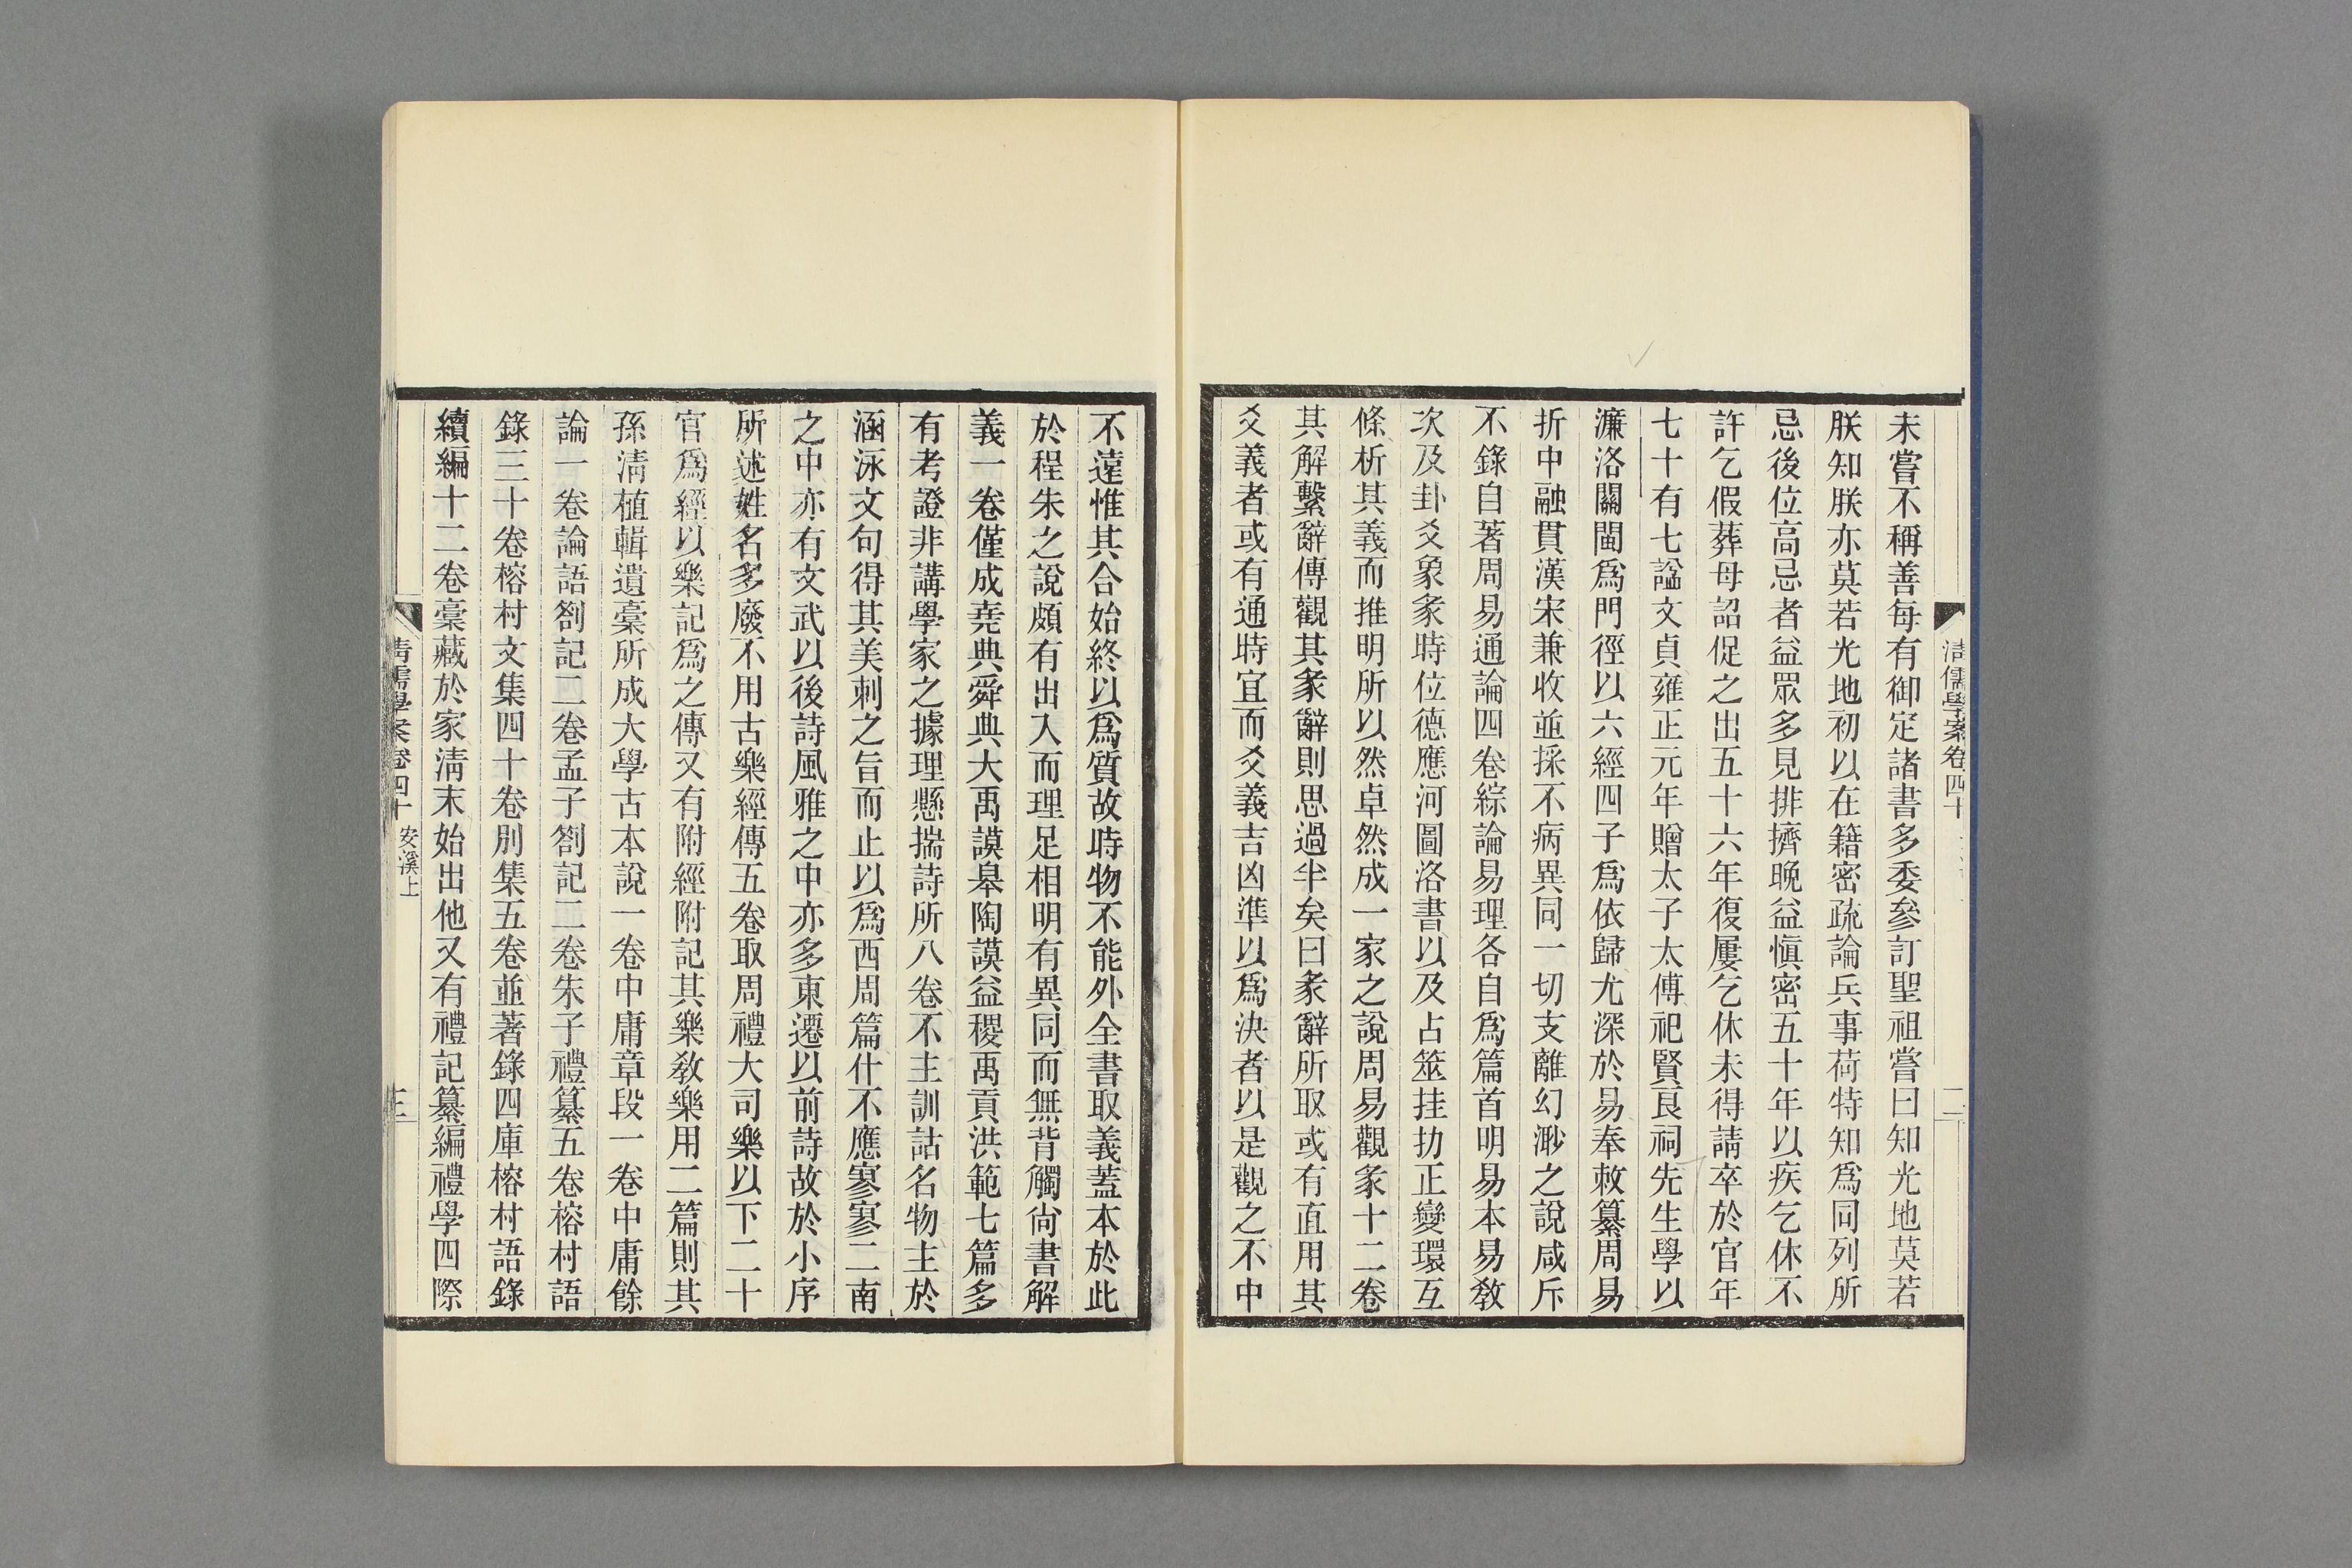 清儒學案卷四十
二
未嘗不稱善每有御定諸書多委參訂聖祖嘗曰知光地莫若
朕知朕亦莫若光地初以在籍密疏論兵事荷特知爲同列所
忌後位高忌者益眾多見排擠晚益愼密五十年以疾乞休不
許乞假葬母詔促之出五十六年復屢乞休未得請卒於官年
七十有七諡文貞雍正元年贈太子太傅祀賢良祠先生學以
濂洛關閩爲門徑以六經四子爲依歸尤深於易奉敕纂周易
折中融貫漢宋兼收並採不病異同一切支離幻渺之說咸斥
不錄自著周易通論四卷綜論易理各自爲篇首明易本易敎
次及卦爻象彖時位德應河圖洛書以及占筮挂扐正變環互
條析其義而推明所以然卓然成一家之說周易觀彖十二卷
其解繫辭傳觀其彖辭則思過半矣曰彖辭所取或有直用其
爻義者或有通時宜而爻義吉凶準以爲決者以是觀之不中
不遠惟其合始終以爲質故時物不能外全書取義蓋本於此
於程朱之說頗有出入而理足相明有異同而無背觸尙書解
義一卷僅成堯典舜典大禹謨皋陶謨益稷禹貢洪範七篇多
有考證非講學家之據理懸揣詩所八卷不主訓詁名物主於
涵泳文句得其美刺之旨而止以爲西周篇什不應寥寥二南
之中亦有文武以後詩風雅之中亦多東遷以前詩故於小序
所述姓名多廢不用古樂經傳五卷取周禮大司樂以下二十
官爲經以樂記爲之傳又有附經附記其樂敎樂用二篇則其
孫清植輯遺稾所成大學古本說一卷中庸章段一卷中庸餘
論一卷論語劄記二卷孟子劄記二卷朱子禮纂五卷榕村語
錄三十卷榕村文集四十卷別集五卷並著錄四庫榕村語錄
續編十二卷稾藏於家清末始出他又有禮記纂編禮學四際
清儒學案卷四十
安溪上
三